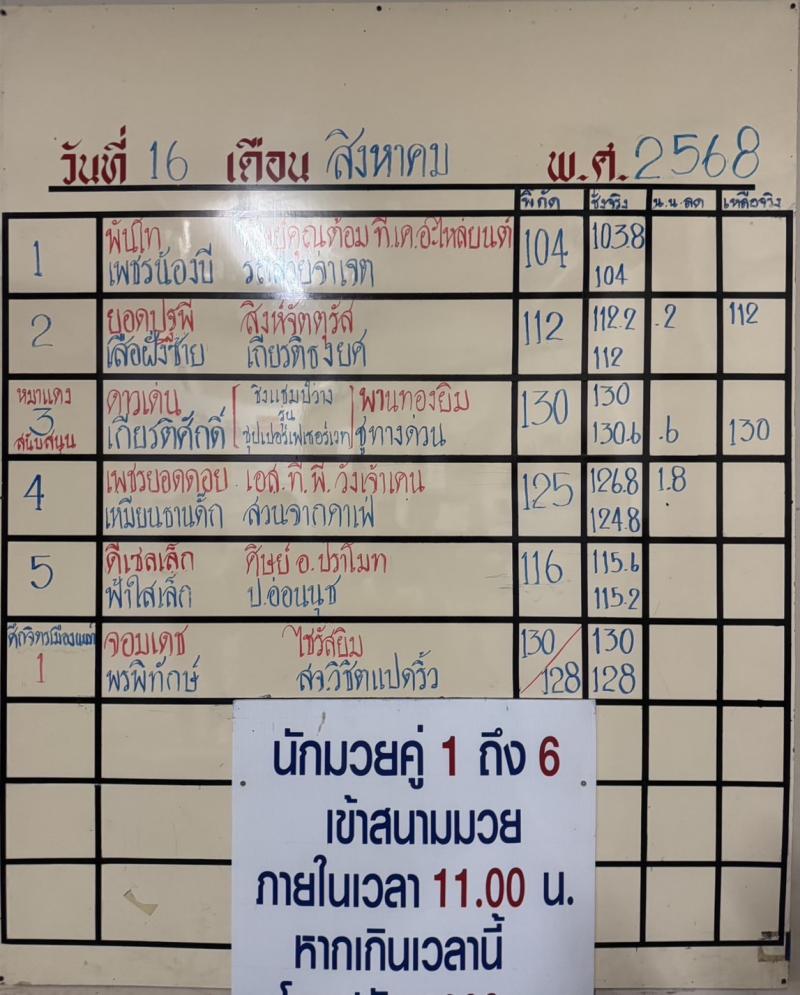 วันที่ 16 เดือน สิงหาคม พ.ศ. 2568
พิกัด ชั่งจริง น.น.ลด เหลือจริง
1 พันโท ศิษย์คุณต้อม ที.เด.อะไหล่ยนต์ 104 103.8
เพชรน้องบี รถสวยจ่าเจต 104
2 ยอดปฐพี สิงห์จัตตุรัส 112 112.2 .2 112
เสือฝั่งซ้าย เกียรติธงยศ 112
หมาแดง 3 สนับสนุน
ดาวเด่น [ชิงแชมป์ว่าง รุ่น ซุปเปอร์เฟเธอร์เวท] พานทองยิม 130 130
เกียรติศักดิ์ ชูทางด่วน 130.6 .6 130
4 เพชรยอดดอย เอส.ที.พี.วังเจ้าเคน 125 126.8 1.8
เหมียนธานดั๊ก สวนจากคาเฟ่ 124.8
5 ดีเซลเล็ก ศิษย์ อ.ปราโมท 116 115.6
ฟ้าใสเล็ก ป.อ่อนนุช 115.2
1 จอมเดช ไชรัสยิม 130/128 130
พรพิทักษ์ สจ.วิชิตแปดริ้ว 128
นักมวยคู่ 1 ถึง 6
เข้าสนามมวย
ภายในเวลา 11.00 น.
หากเกินเวลานี้